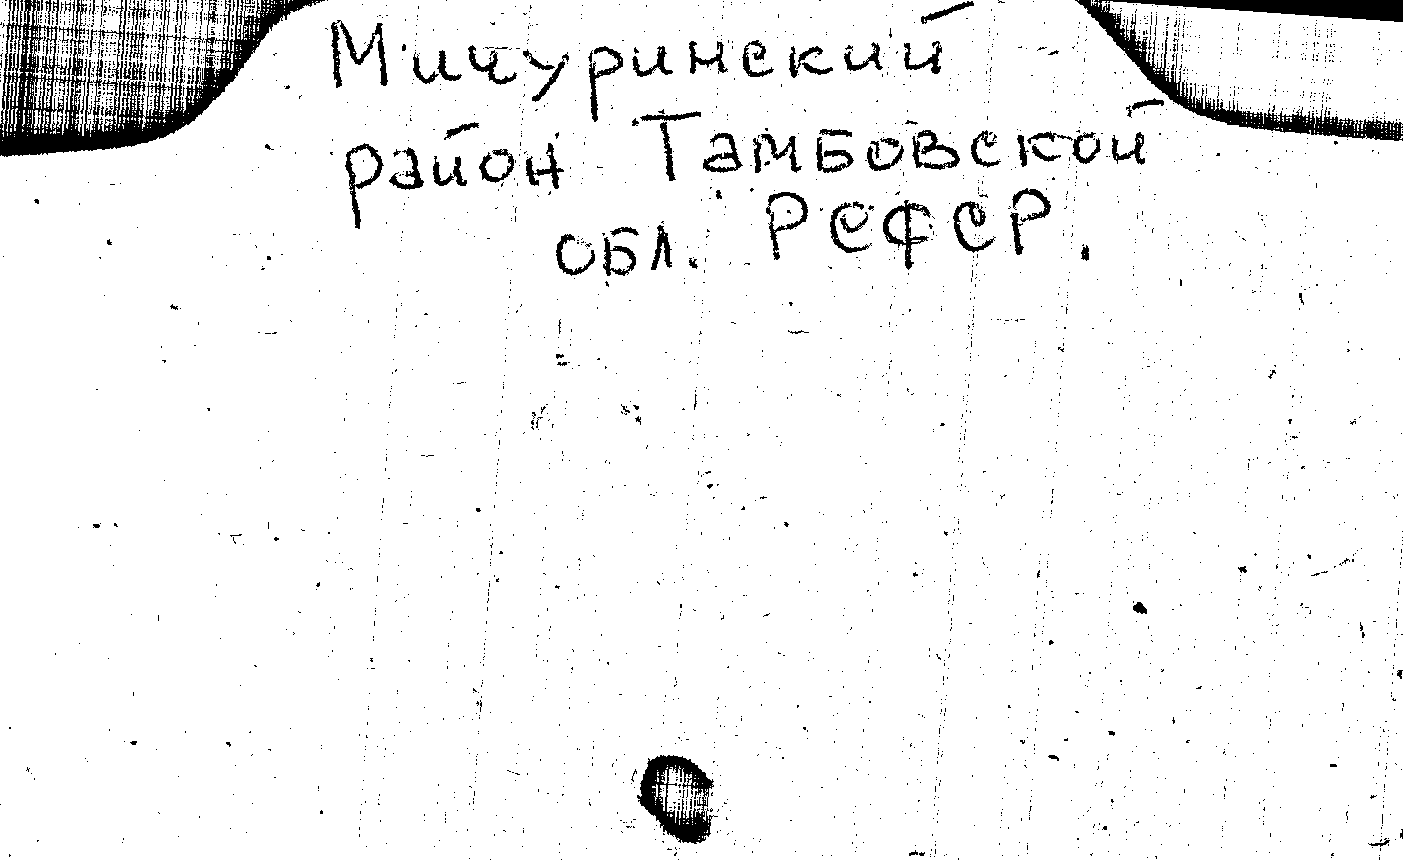 Мичуринский
район Тамбовской
обл. РСФСР.